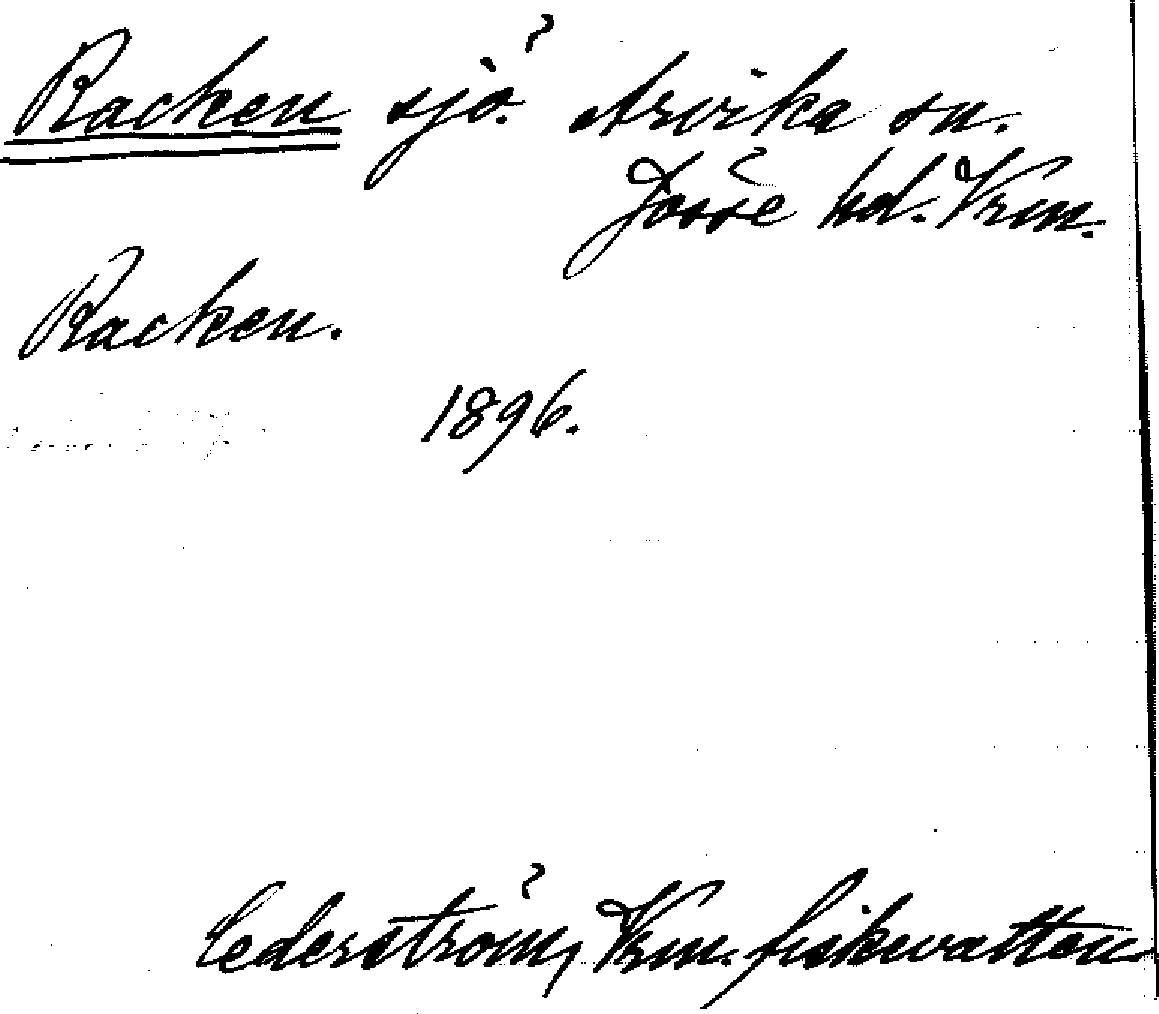 Racken sjö. Arvika sn.
Jösse hd. Vrm.
Racken.
1896.
Cederström, Vrm. fiskevatten